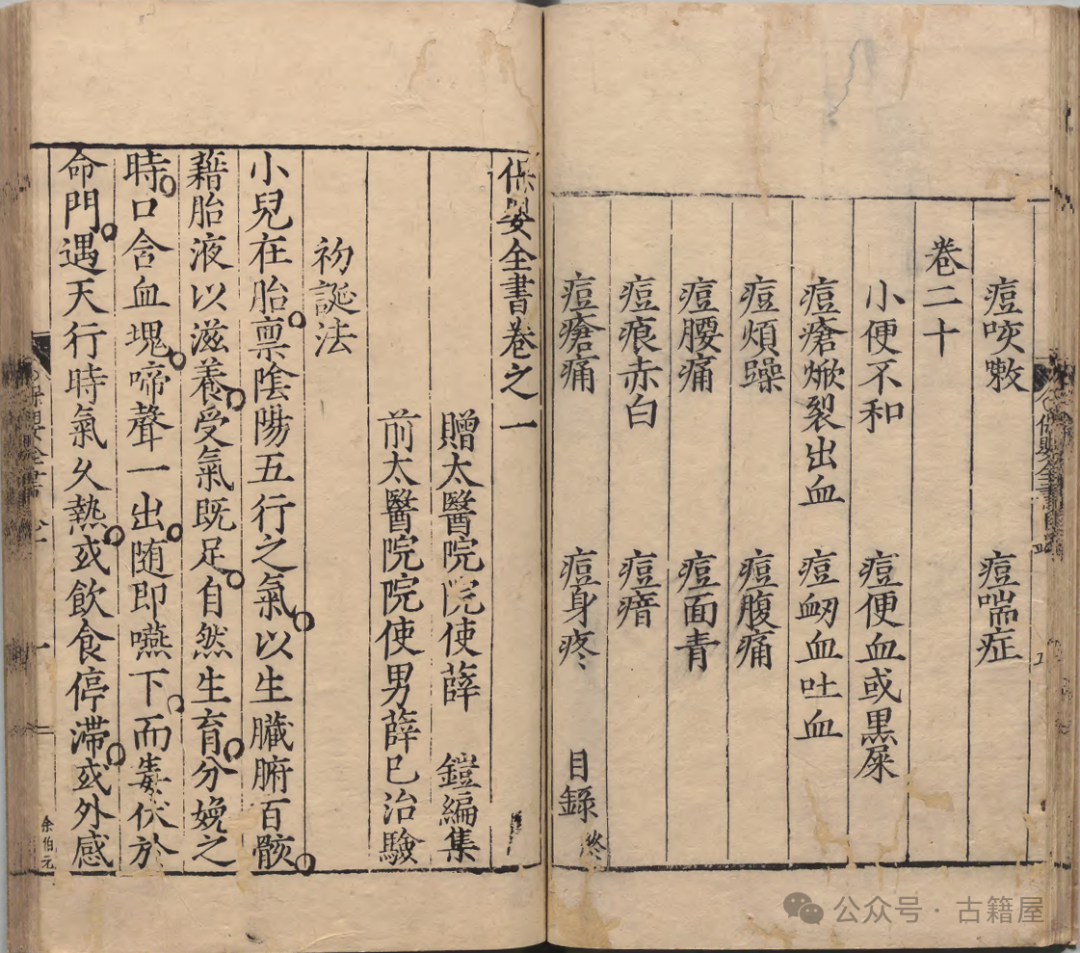 痘咳嗽　痘喘症
卷二十
小便不和　痘便血或黑屎
痘瘡㷄裂出血　痘衂血吐血
痘煩躁　痘腹痛
痘腰痛　痘面青
痘痕赤白　痘瘖
痘瘡痛　痘身疼　目錄終
保嬰全書卷之一
贈太醫院院使薛　鎧編集
前太醫院院使男薛已治驗
初誕法
小兒在胎禀陰陽五行之氣以生臟腑百骸
藉胎液以滋養受氣既足自然生育分娩之
時口含血塊啼聲一出随即嚥下而毒伏於
命門遇天行時氣久熱或飲食停滯或外感
保嬰全書
余伯元
公众号 · 古籍屋